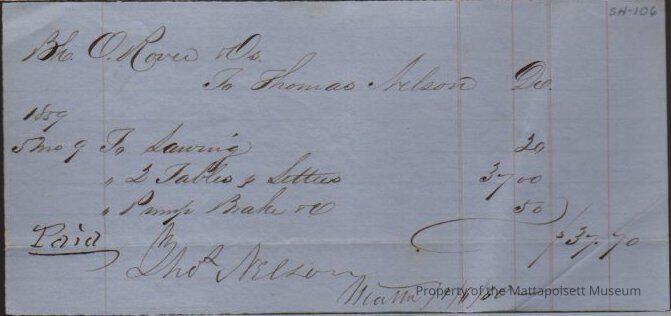 SH-106
Bk. O. Rover & Os.
To Thomas Nelson Dr.
1859
5 mo 9 To Sawing 20
" 2 Tables & Settees 37 00
" Pump Brake &c 50
$37.70
Paid
Thos Nelson
Property of the Mattapoisett Museum